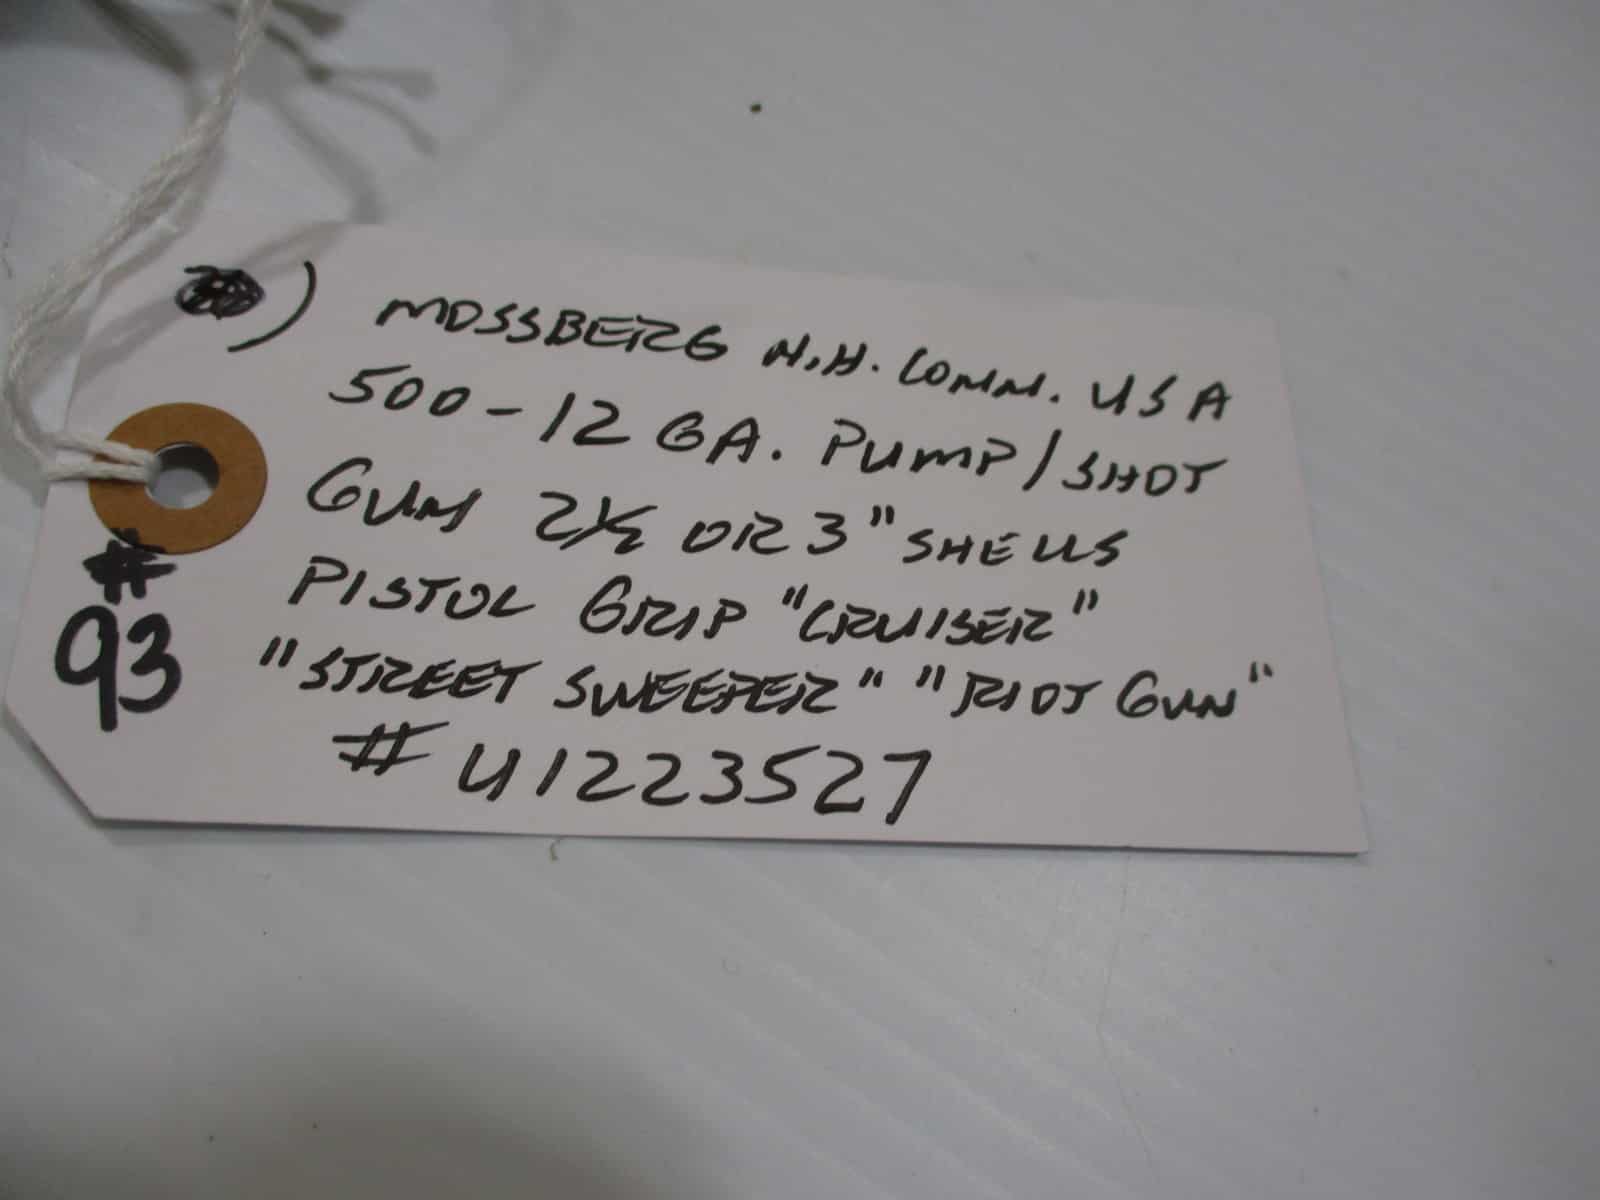 ) MOSSBERG N.H. CONN. USA
500-12 GA. PUMP/SHOT
GUN 2½ OR 3" SHELLS
PISTOL GRIP "CRUISER"
"STREET SWEEPER" "RIOT GUN"
# U1223527
#
93